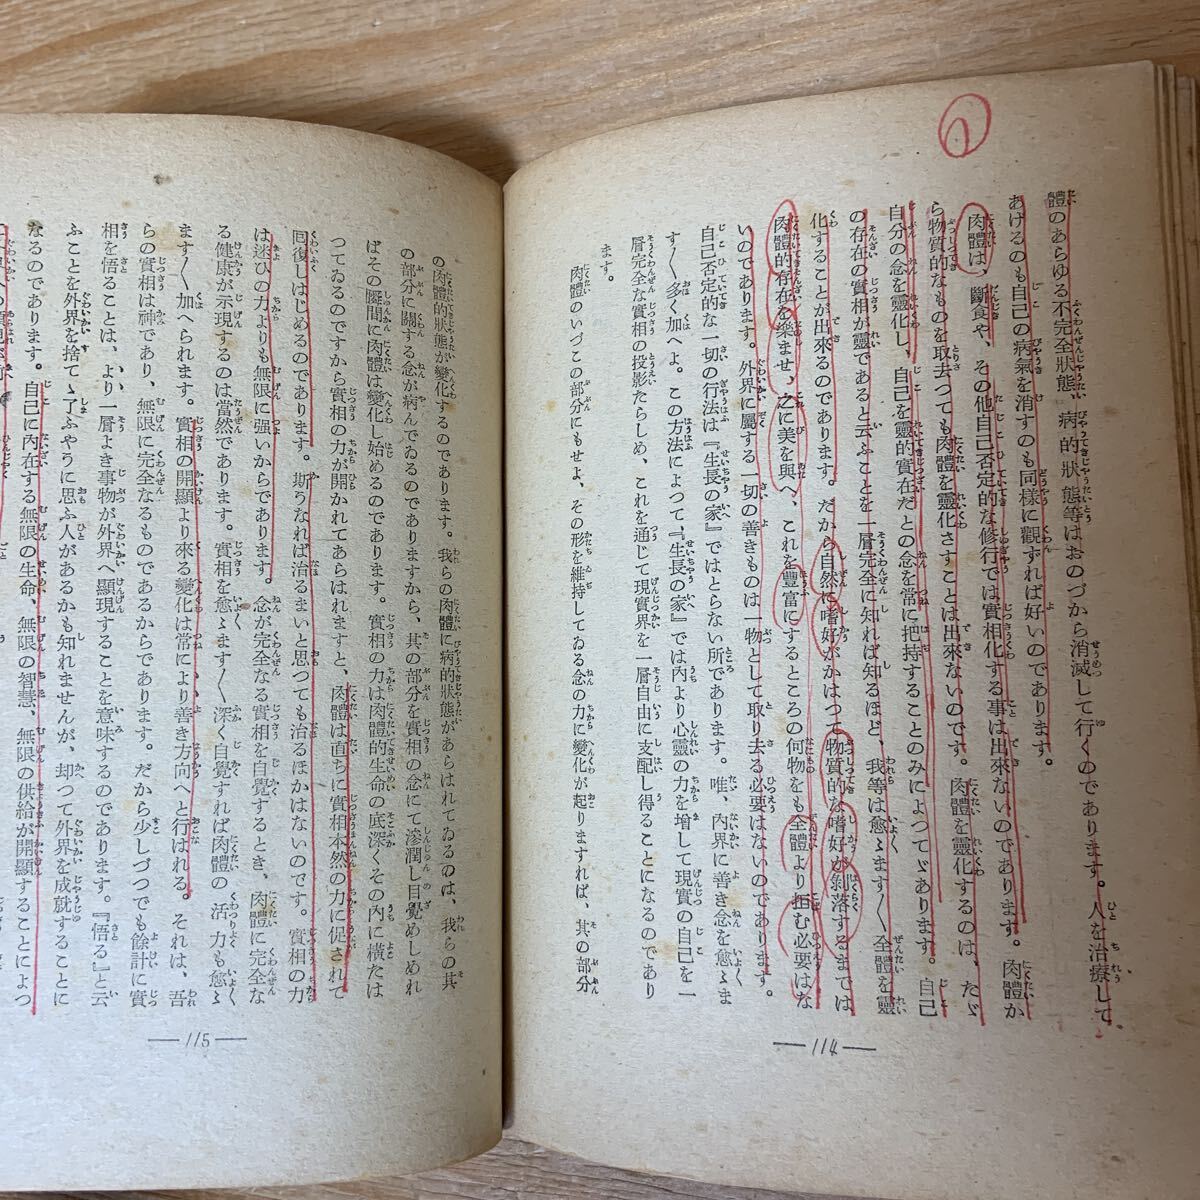 體のあらゆる不完全狀態、病的狀態等はおのづから消滅して行くのであります。人を治療して
あげるのも自己の病氣を消すのも同樣に觀ずれば好いのであります。
肉體は、斷食や、その他自己否定的な修行では實相化する事は出來ないのであります。肉體か
ら物質的なものを取去つても肉體を靈化さすことは出來ないのです。肉體を靈化するのは、たゞ
自分の念を靈化し、自己を靈的實在だとの念を常に把持することのみによつてゞあります。自己
の存在の實相が靈であると云ふことを一層完全に知れば知るほど、我等は愈〻ます〱全體を靈
化することが出來るのであります。だから自然に嗜好がかはつて物質的な嗜好が剝落するまでは
肉體的存在を樂ませ、之に美を與へ、これを豐富にするところの何物をも全體より拒む必要はな
いのであります。外界に屬する一切の善きものは一物として取り去る必要はないのであります。
自己否定的な一切の行法は『生長の家』ではとらない所であります。唯、內界に善き念を愈〻ま
す〱多く加へよ。この方法によつて、『生長の家』では內より心靈の力を增して現實の自己を一
層完全な實相の投影たらしめ、これを通じて現實界を一層自由に支配し得ることになるのであり
ます。
肉體のいづこの部分にもせよ、その形を維持してゐる念の力に變化が起りますれば、其の部分
—114—
の肉體的狀態が變化するのであります。我らの肉體に病的狀態があらはれてゐるのは、我らの其
の部分に關する念が病んでゐるのでありますから、其の部分を實相の念にて滲潤し目覺めしめれ
ばその瞬間に肉體は變化し始めるのであります。實相の力は肉體的生命の底深くその內に橫たは
つてゐるのですから實相の力が開かれてあらはれますと、肉體は直ちに實相本然の力に促されて
囘復しはじめるのであります。斯うなれば治るまいと思つても治るほかはないのです。實相の力
は迷ひの力よりも無限に强いからであります。念が完全なる實相を自覺するとき、肉體に完全な
る健康が示現するのは當然であります。實相を愈〻ます〱深く自覺すれば肉體の活力も愈〻
ます〱加へられます。實相の開顯より來る變化は常により善き方向へと行はれる。それは、吾
らの實相は神であり、無限に完全なるものであるからであります。だから少しづつでも餘計に實
相を悟ることは、より一層よき事物が外界へ顯現することを意味するのであります。『悟る』と云
ふことを外界を捨てゝ了ふやうに思ふ人があるかも知れませんが、却つて外界を成就することに
なるのであります。自己に內在する無限の生命、無限の智慧、無限の供給が開顯することによつ
—115—